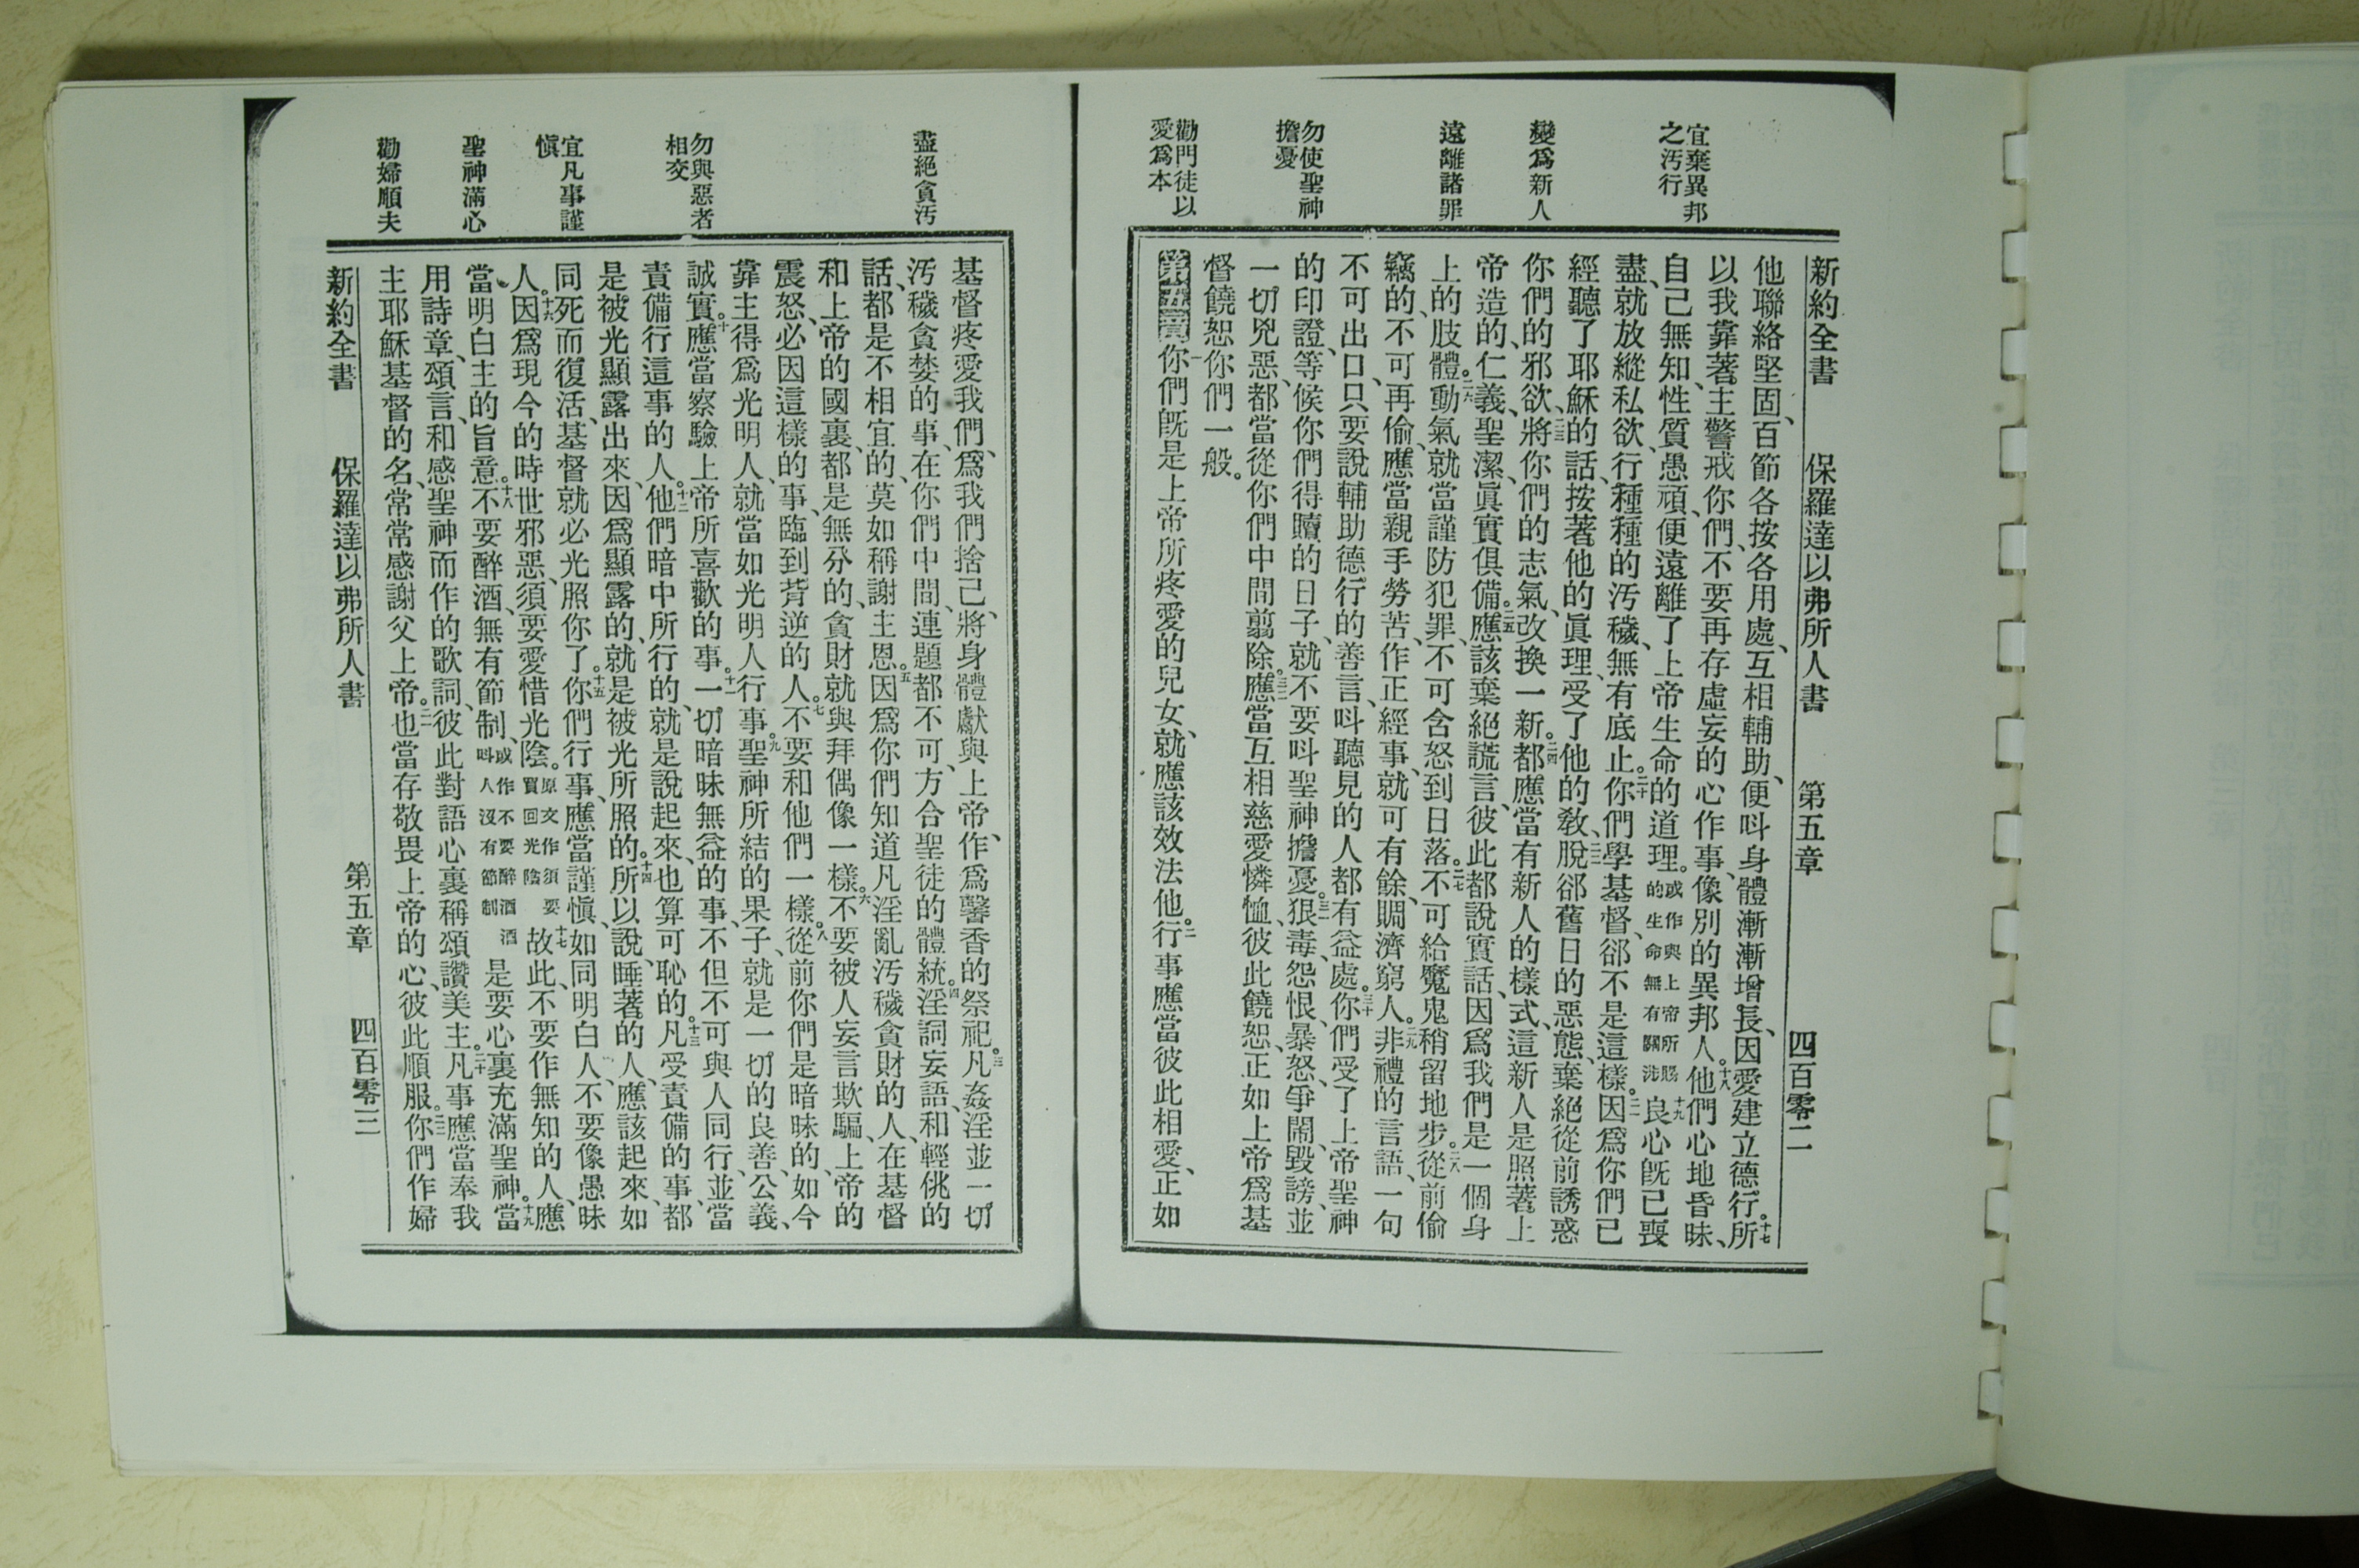 宜棄異邦
之污行
變爲新人
遠離諸罪
勿使聖神
擔憂
勸門徒以
愛爲本
新約全書 保羅達以弗所人書 第五章 四百零二
他聯絡堅固、百節各按各用處、互相輔助、便呌身體漸漸增長、因愛建立德行。十七所
以我靠著主警戒你們、不要再存虛妄的心作事、像別的異邦人。十八他們心地昏昧、
自己無知、性質愚頑、便遠離了上帝生命的道理。或作與上帝所賜的生命無有關涉十九良心旣已喪
盡、就放縱私欲、行種種的污穢、無有底止。二十你們學基督、卻不是這樣。二一因爲你們已
經聽了耶穌的話、按著他的眞理、受了他的敎、二二脫卻舊日的惡態、棄絕從前誘惑
你們的邪欲、二三將你們的志氣、改換一新。二四都應當有新人的樣式、這新人是照著上
帝造的、仁義、聖潔、眞實俱備。二五應該棄絕謊言、彼此都說實話、因爲我們是一個身
上的肢體。二六動氣就當謹防犯罪、不可含怒到日落。二七不可給魔鬼稍留地步。二八從前偷
竊的、不可再偷、應當親手勞苦、作正經事、就可有餘、賙濟窮人。二九非禮的言語、一句
不可出口、只要說輔助德行的善言、呌聽見的人都有益處。三十你們受了上帝聖神
的印證、等候你們得贖的日子、就不要呌聖神擔憂。三一狠毒、怨恨、暴怒、爭鬧、毀謗、並
一切兇惡、都當從你們中間翦除。三二應當互相慈愛憐恤、彼此饒恕、正如上帝爲基
督饒恕你們一般。
第五章一你們旣是上帝所疼愛的兒女、就應該效法他。二行事應當彼此相愛、正如
盡絕貪污
勿與惡者
相交
宜凡事謹
愼
聖神滿心
勸婦順夫
基督疼愛我們、爲我們捨己、將身體獻與上帝、作爲馨香的祭祀。三凡姦淫並一切
污穢貪婪的事、在你們中間、連題都不可、方合聖徒的體統。四淫詞妄語、和輕佻的
話、都是不相宜的、莫如稱謝主恩。五因爲你們知道凡淫亂污穢貪財的人、在基督
和上帝的國裏、都是無分的、貪財就與拜偶像一樣。六不要被人妄言欺騙、上帝的
震怒、必因這樣的事、臨到背逆的人。七不要和他們一樣。八從前你們是暗昧的、如今
靠主得爲光明人、就當如光明人行事。九聖神所結的果子、就是一切的良善、公義、
誠實。十應當察驗上帝所喜歡的事。十一一切暗昧無益的事、不但不可與人同行、並當
責備行這事的人。十二他們暗中所行的、就是說起來、也算可恥的。十三凡受責備的事、都
是被光顯露出來、因爲顯露的、就是被光所照的。十四所以說、睡著的人、應該起來、如
同死而復活、基督就必光照你了。十五你們行事、應當謹愼、如同明白人、不要像愚昧
人。十六因爲現今的時世邪惡、須要愛惜光陰。原文作須要買回光陰十七故此、不要作無知的人、應
當明白主的旨意。十八不要醉酒、無有節制、或作不要醉酒酒呌人沒有節制是要心裏充滿聖神。十九當
用詩章、頌言、和感聖神而作的歌詞、彼此對語、心裏稱頌讚美主。二十凡事應當奉我
主耶穌基督的名、常常感謝父上帝。二一也當存敬畏上帝的心、彼此順服。二二你們作婦
新約全書 保羅達以弗所人書 第五章 四百零三